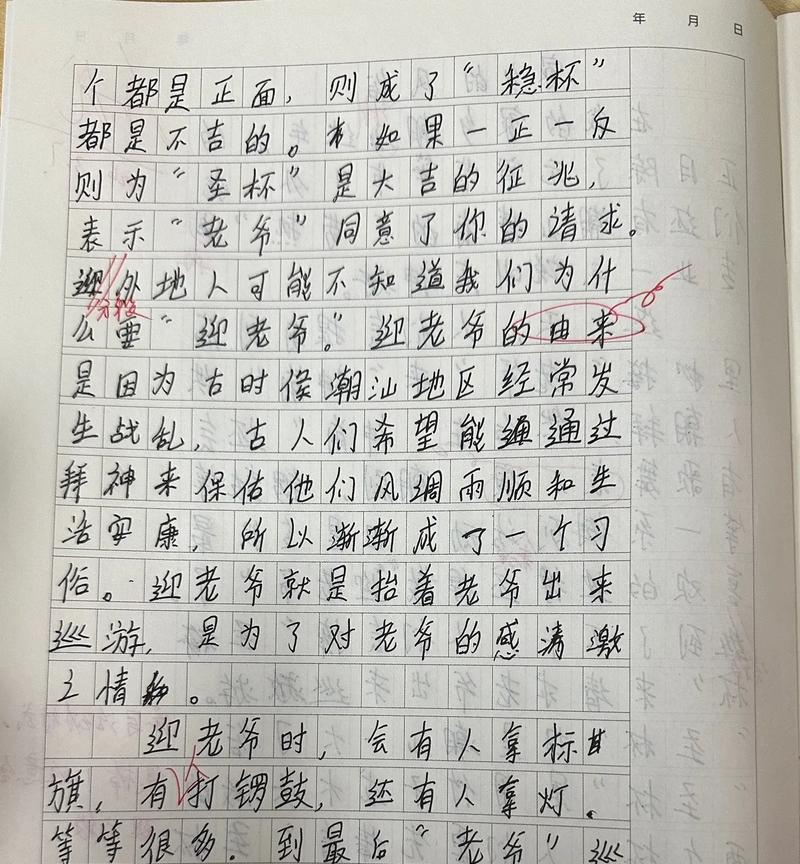 年 月 日
个都是正面，则成了“稳杯”
都是不吉的。如果一正一反
则为“圣杯”是大吉的征兆，
表示“老爷”同意了你的请求。
外地人可能不知道我们为什
分段
么要“迎老爷。”迎老爷的由来
是因为古时候潮汕地区经常发
生战乱，古人们希望能通过
拜神来保佑他们风调雨顺和生
活安康，所以渐渐成了一个习
俗。迎老爷就是抬着老爷出来
巡游，是为了对老爷的感清激
之情。
迎老爷时，会有人拿标
旗，有打锣鼓，还有人拿灯．
等等很多．到最后“老爷”巡